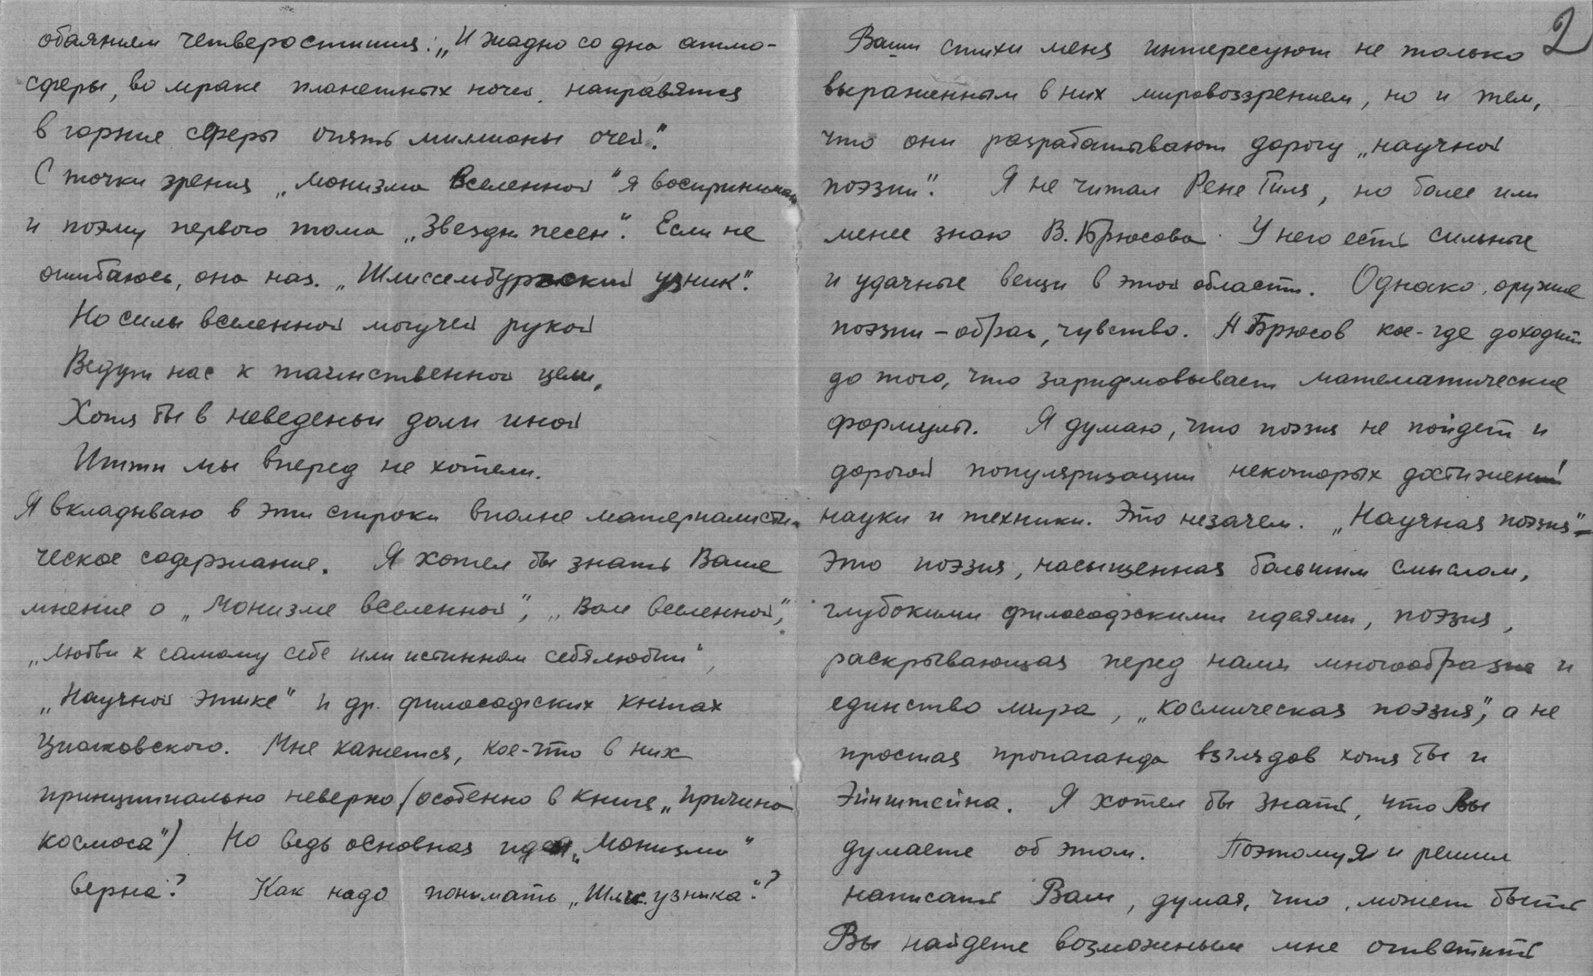 обаянием четверостишия: „И жадно со дна атмо-
сферы, во мраке планетных ночей, направятся
в горние сферы опять миллионы очей."
С точки зрения „Монизма Вселенной" я воспринимаю
и поэму первого тома „Звездн песен". Если не
ошибаюсь, она наз. „Шлиссельбургский узник".
Но силы вселенной могучей рукой
Ведут нас к таинственной цели,
Хотя бы в неведеньи доли иной
Итти мы вперед не хотели.
Я вкладываю в эти строки вполне материалисти-
ческое содержание. Я хотел бы знать Ваше
мнение о „Монизме вселенной", „Воле вселенной",
„Любви к самому себе или истинном себялюбии",
„Научной этике" и др. философских книгах
Циолковского. Мне кажется, кое-что в них
принципиально неверно (особенно в книге „Причина
космоса"). Но ведь основная идея „Монизма"
верна? Как надо понимать „Шлис. узника"?
2
Ваши стихи меня интересуют не только
выраженным в них мировоззрением, но и тем,
что они разрабатывают дорогу „научной
поэзии". Я не читал Рене Гиля, но более или
менее знаю В. Брюсова. У него есть сильные
и удачные вещи в этой области. Однако, оружие
поэзии – образ, чувство. А Брюсов кое-где доходит
до того, что зарифмовывает математические
формулы. Я думаю, что поэзия не пойдет и
дорогой популяризации некоторых достижений
науки и техники. Это незачем. „Научная поэзия" –
это поэзия, насыщенная большим смыслом,
глубокими философскими идеями, поэзия,
раскрывающая перед нами многообразие и
единство мира, „космическая поэзия", а не
простая пропаганда взглядов хотя бы и
Эйнштейна. Я хотел бы знать, что Вы
думаете об этом. Поэтому я и решил
написать Вам, думая, что, может быть
Вы найдете возможным мне ответить